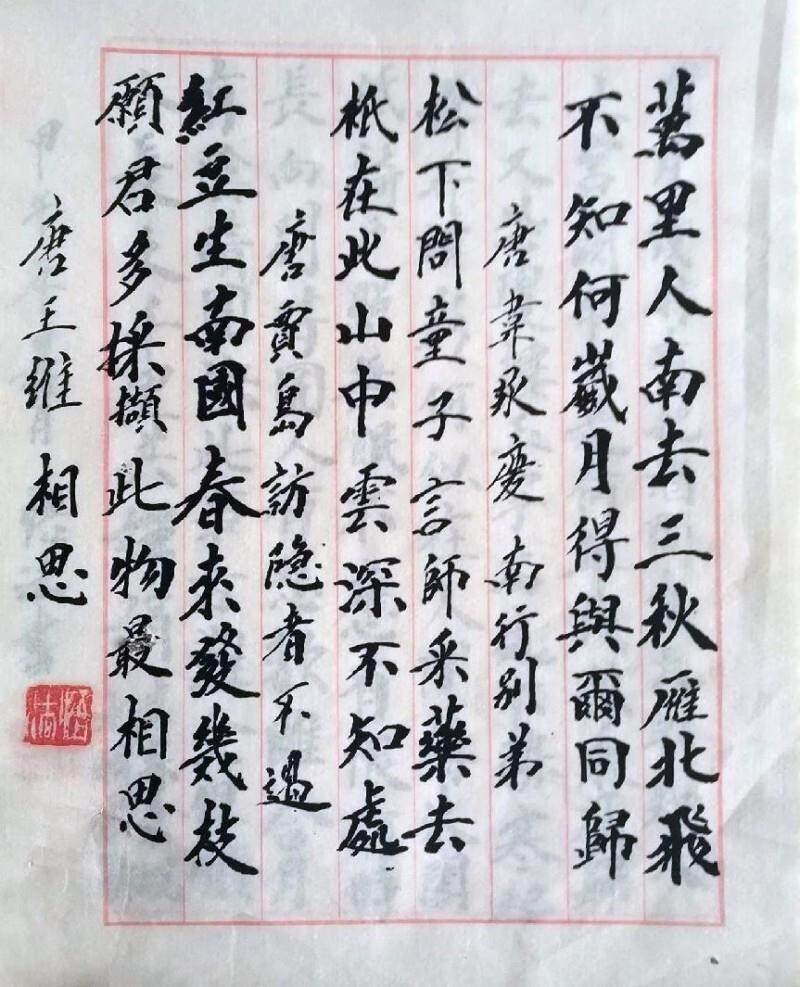 萬里人南去三秋雁北飛
不知何歲月得與爾同歸
唐韋承慶南行别弟
松下問童子言師采藥去
祇在此山中雲深不知處
唐賈島訪隐者不遇
紅豆生南國春来發幾枝
願君多採擷此物最相思
唐王維相思